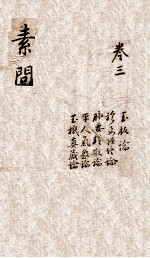 卷三
玉板論
診要經終論
脉要精微論
平人氣象論
玉機真藏論
素問